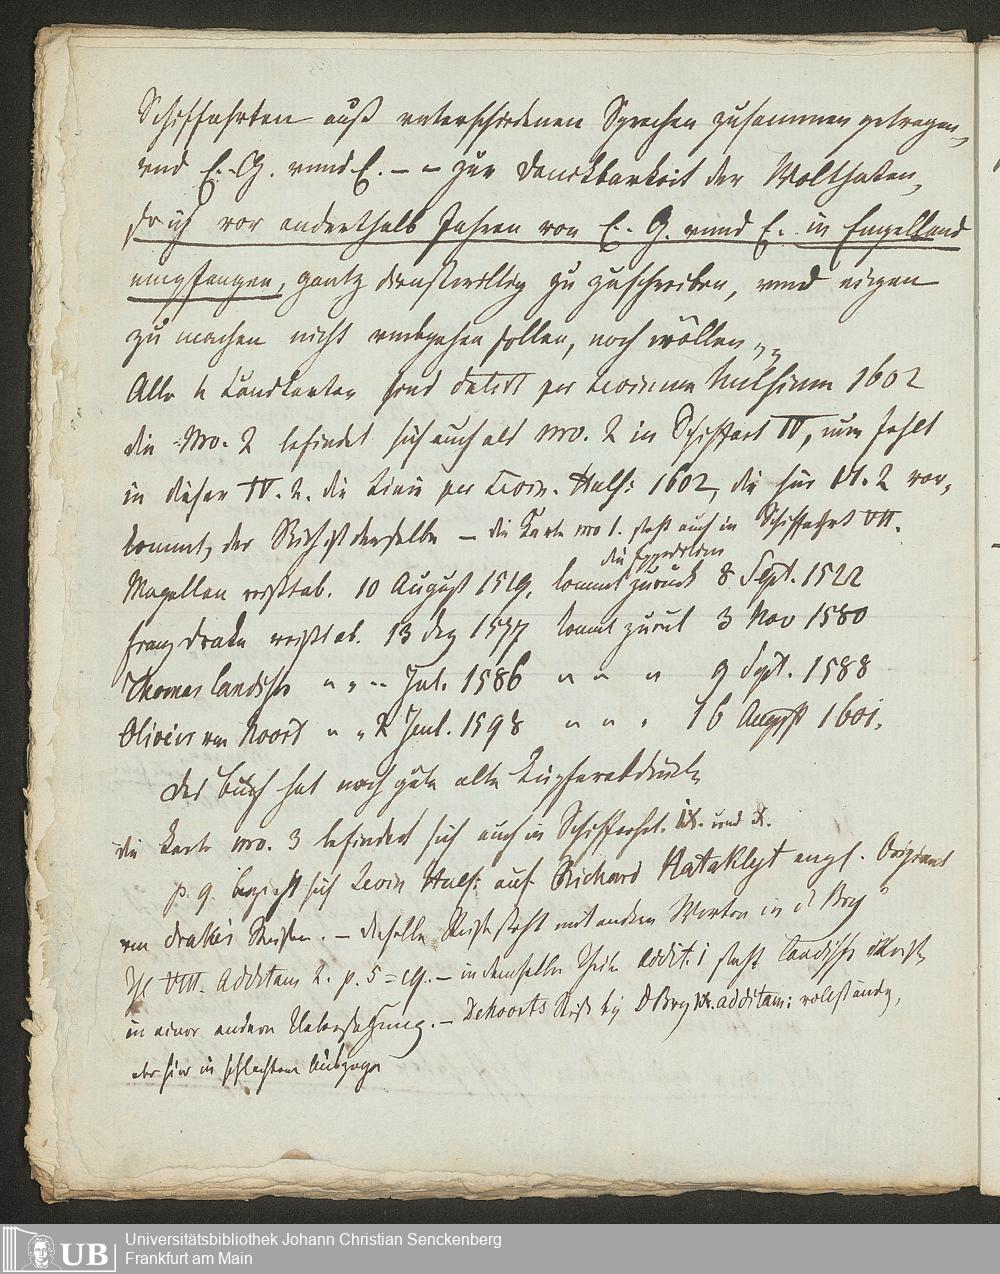 Schiffahrten auß unterschiedenen Sprachen zusammen getragen,
und E. G. unnd E. – – zur Danckbarkeit der Wolthaten,
so ich vor anderthalb Jahren von E. G. unnd E. in Engelland
empfangen, gantz dienstwillig zu zuschreiben, unnd eigen
zu machen nicht umbgehen sollen, noch wöllen „„
Alle Landkarten sind datirt per Levinum Hulsium 1602
die Nro. 2 befindet sich auch als Nro. 2 in Schiffart IV, nur fehlt
in dieser IV. 2. die Linie per Levin. Huls: 1602, die hier N. 2 vor-
kommt, der Stich ist derselbe – die Karte nro 1. steht auch in Schiffahrt VII.
die Expedition
Magellan reißt ab. 10 August 1519, kommt zurück 8 Sept. 1522
Franz Drake reißt ab. 13 dez 1577 kommt zurück 3 Nov 1580
Thomas Candish „ „ „ Jul. 1586 „ „ „ 9 Sept. 1588
Olivier von Noort „ „ 2 Jul. 1598 „ „ „ 26 August 1601.
Das Buch hat noch gute alte Kupferabdrücke
die Karte nro. 3 befindet sich auch in Schiffarht. IX. und X.
p. 9 bezieht sich Levin Huls: auf Richard Hataklyt engl. Original
von Drakes Reisen. – dieselbe Reise steht mit andern Worten in d Bry
VIII. Additam 2. p. 5 = – in demselben Theile Addit. 1 steht Candischs Reise
in einer andern Uebersetzung. – DeNoorts Reise bey D Bry IX. additam: vollständig,
aber hier in schlechtem Auszuge
Universitätsbibliothek Johann Christian Senckenberg
Frankfurt am Main
UB